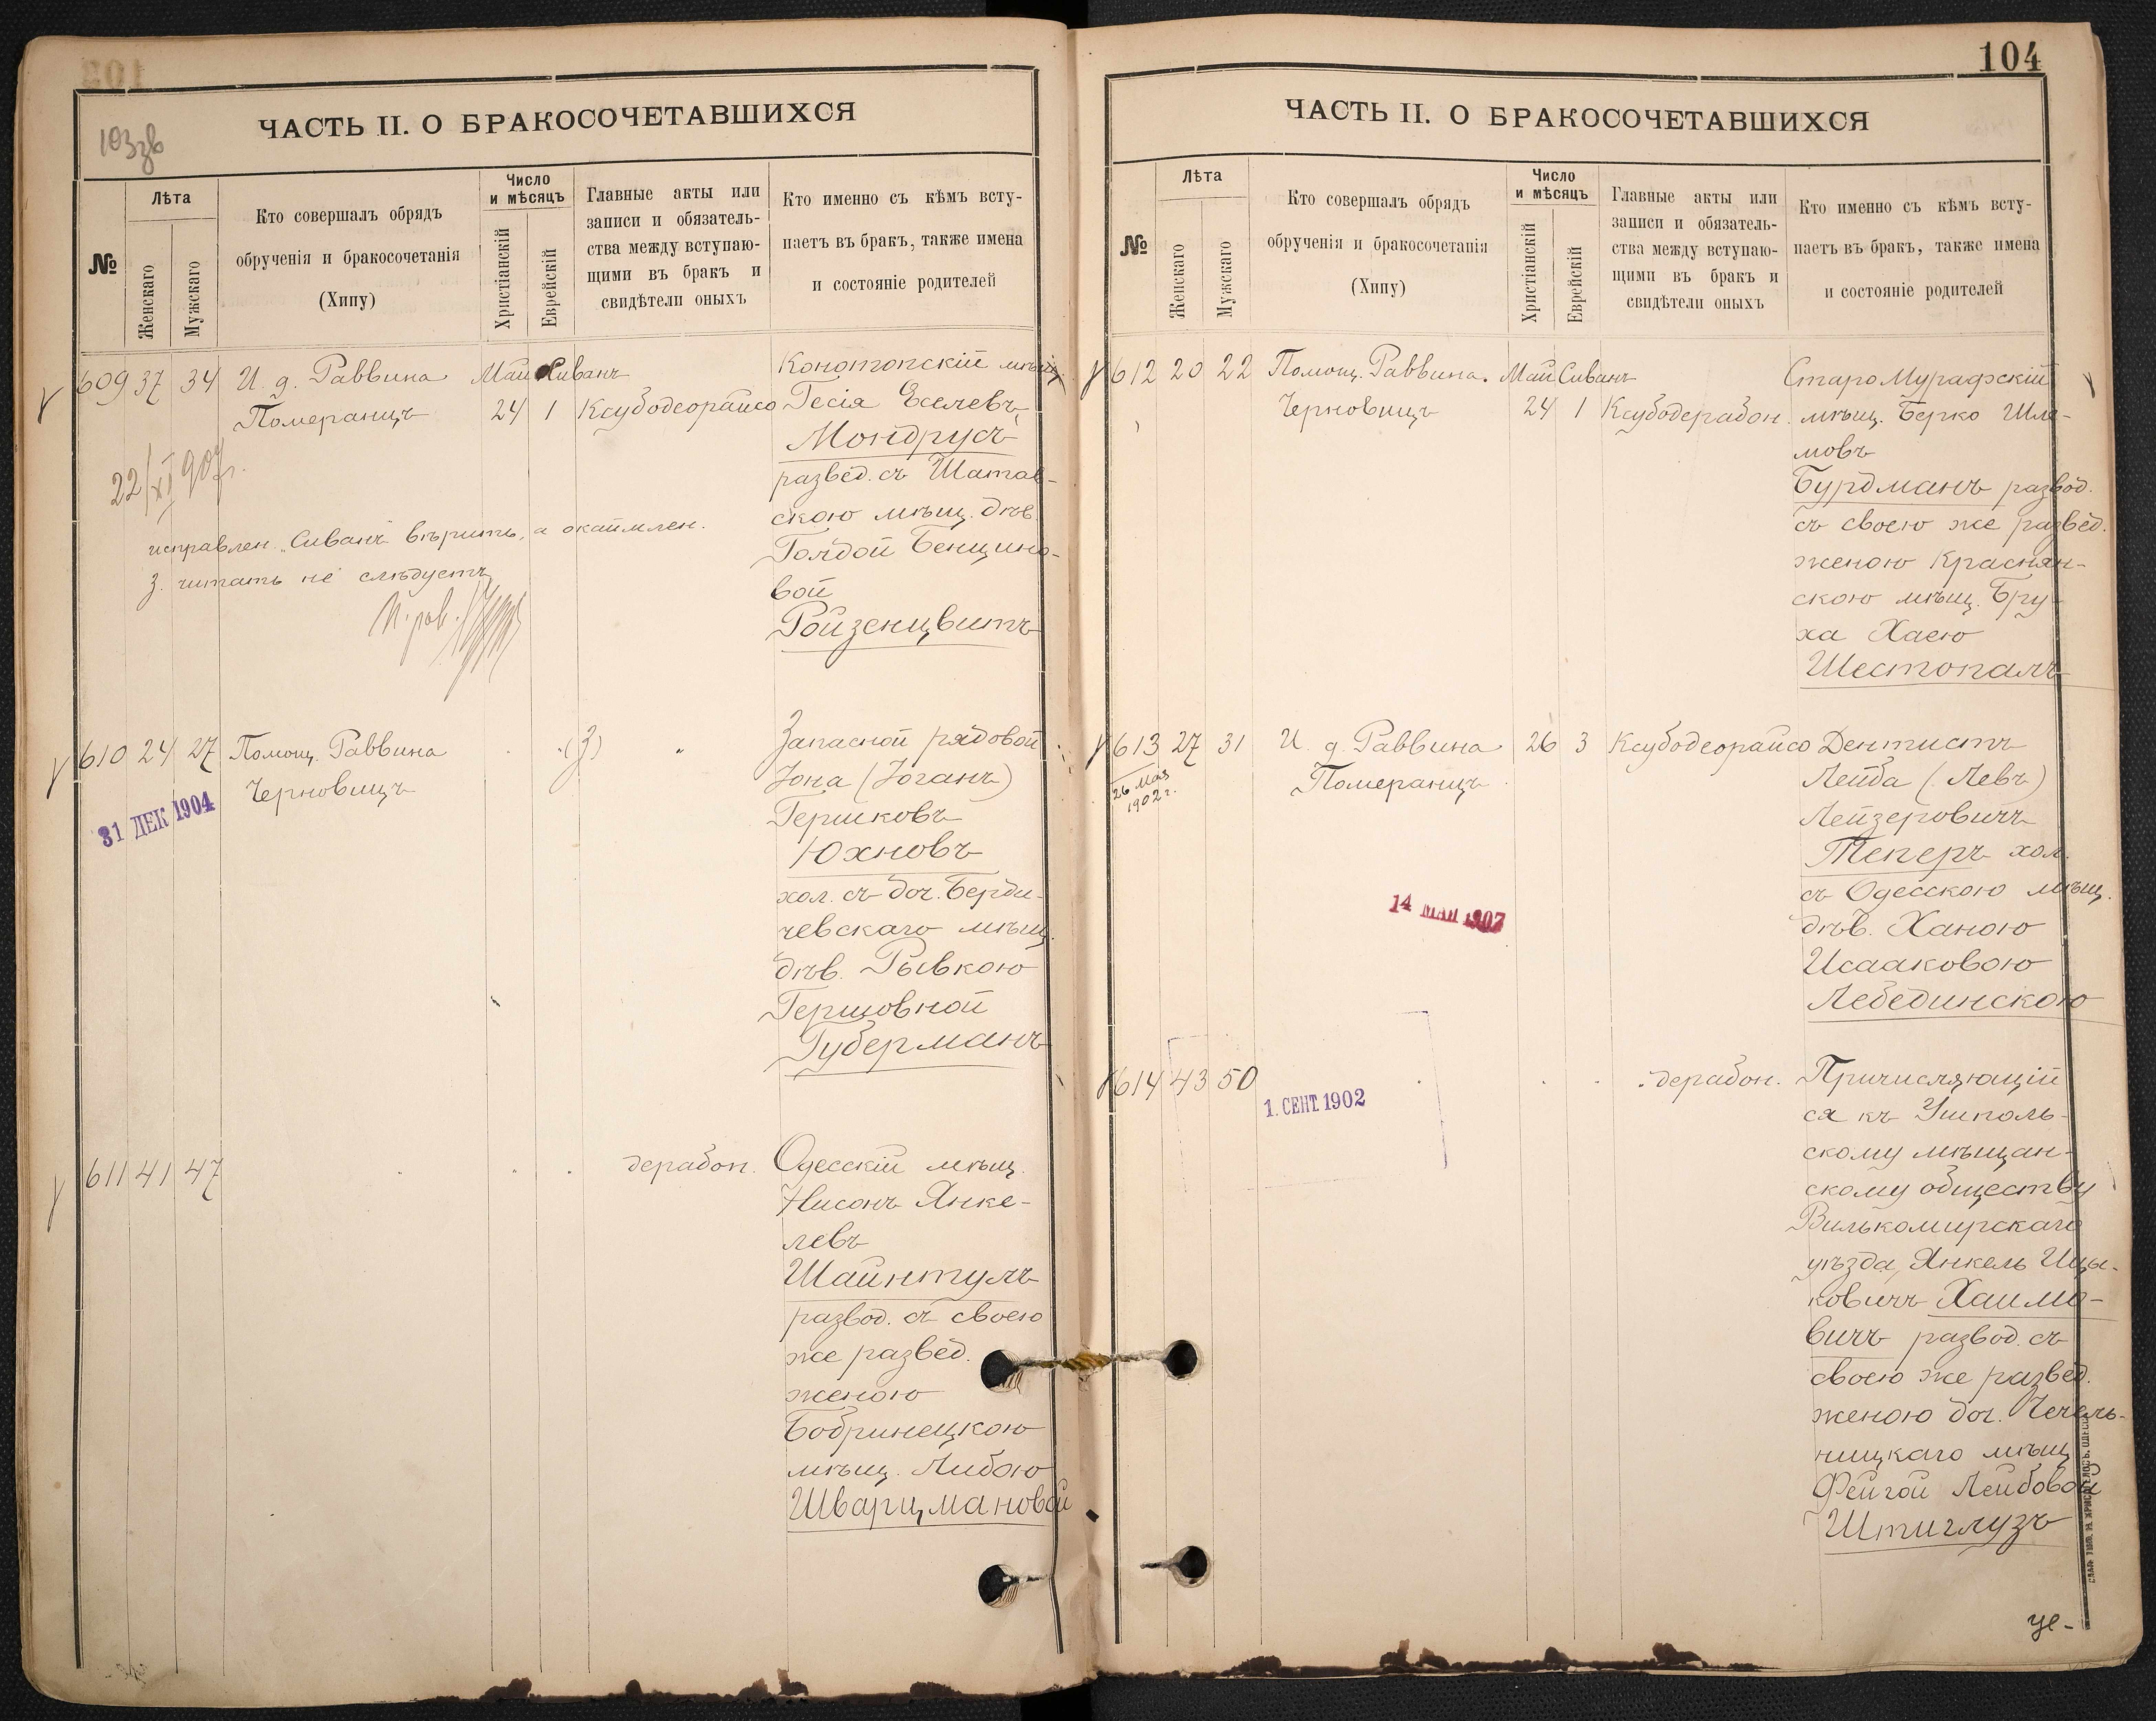 103зв
ЧАСТЬ II. О БРАКОСОЧЕТАВШИХСЯ
№
Лѣта
Женскаго
Мужскаго
Кто совершалъ обрядъ
обрученія и бракосочетанія
(Хипу)
Число
и мѣсяцъ
Христіанскій
Еврейскій
Главные акты или
записи и обязатель-
ства между вступаю-
щими въ бракъ и
свидѣтели оныхъ
Кто именно съ кѣмъ всту-
паетъ въ бракъ, также имена
и состояніе родителей
609 37 34 И. д. Раввина Май Сиванъ Конотопскій мѣщ.
Померанцъ 24 1 Ксубодеорайсо Гесія Еселевъ
Мондрусъ
развед. съ Шатав-
скою мѣщ. дѣв.
Голдой Бенціно-
вой
Ройзенцвитъ
22/XI 907 г.
исправлен. „Сиванъ вѣрить, а окаймлен.
3. читать не слѣдуетъ
610 24 27 Помощ. Раввина . .(3) „ Запасной рядовой
Черновицъ Іона (Іоганъ)
31 ДЕК 1904
Гершковъ
Юхновъ
хол. съ доч. Берди-
чевскаго мѣщ.
дѣв. Рывкою
Гершовной
Губерманъ
611 41 47 . . . дерабон. Одесскій мѣщ.
Нисонъ Янке-
левъ
Шайнтулъ
развод. съ своею
же развед.
женою
Бобринецкою
мѣщ. Либою
Шварцмановой
104
ЧАСТЬ II. О БРАКОСОЧЕТАВШИХСЯ
№
Лѣта
Женскаго
Мужскаго
Кто совершалъ обрядъ
обрученія и бракосочетанія
(Хипу)
Число
и мѣсяцъ
Христіанскій
Еврейскій
Главные акты или
записи и обязатель-
ства между вступаю-
щими въ бракъ и
свидѣтели оныхъ
Кто именно съ кѣмъ всту-
паетъ въ бракъ, также имена
и состояніе родителей
612 20 22 Помощ. Раввина. Май Сиванъ Старо Мурафскій
Черновицъ 24 1 Ксубодерабон. мѣщ. Берко Шле-
мовъ
Бурдманъ развод.
съ своею же развед.
женою Краснян-
скою мѣщ. Бру-
ха Хаею
Шестопалъ
613 27 31 И. д. Раввина 26 3 Ксубодеорайсо Дентистъ
26 Мая
1902 г.
Померанцъ Лейба (Левъ)
Лейзеровичъ
Теперъ хол.
съ Одесскою мѣщ.
дѣв. Ханою
Исааковою
Лебединскою
14 МАЯ 1907
614 43 50 . . . . дерабон. Причисляющій
1. СЕНТ. 1902
ся къ Ушполь-
скому мѣщан-
скому обществу
Вилькомирскаго
уѣзда, Янкель Ицы-
ковичъ Хаимо-
вичъ развод. съ
своею же развед.
женою доч. Чечель-
ницкаго мѣщ.
Фейгой Лейбовой
Штиглузъ